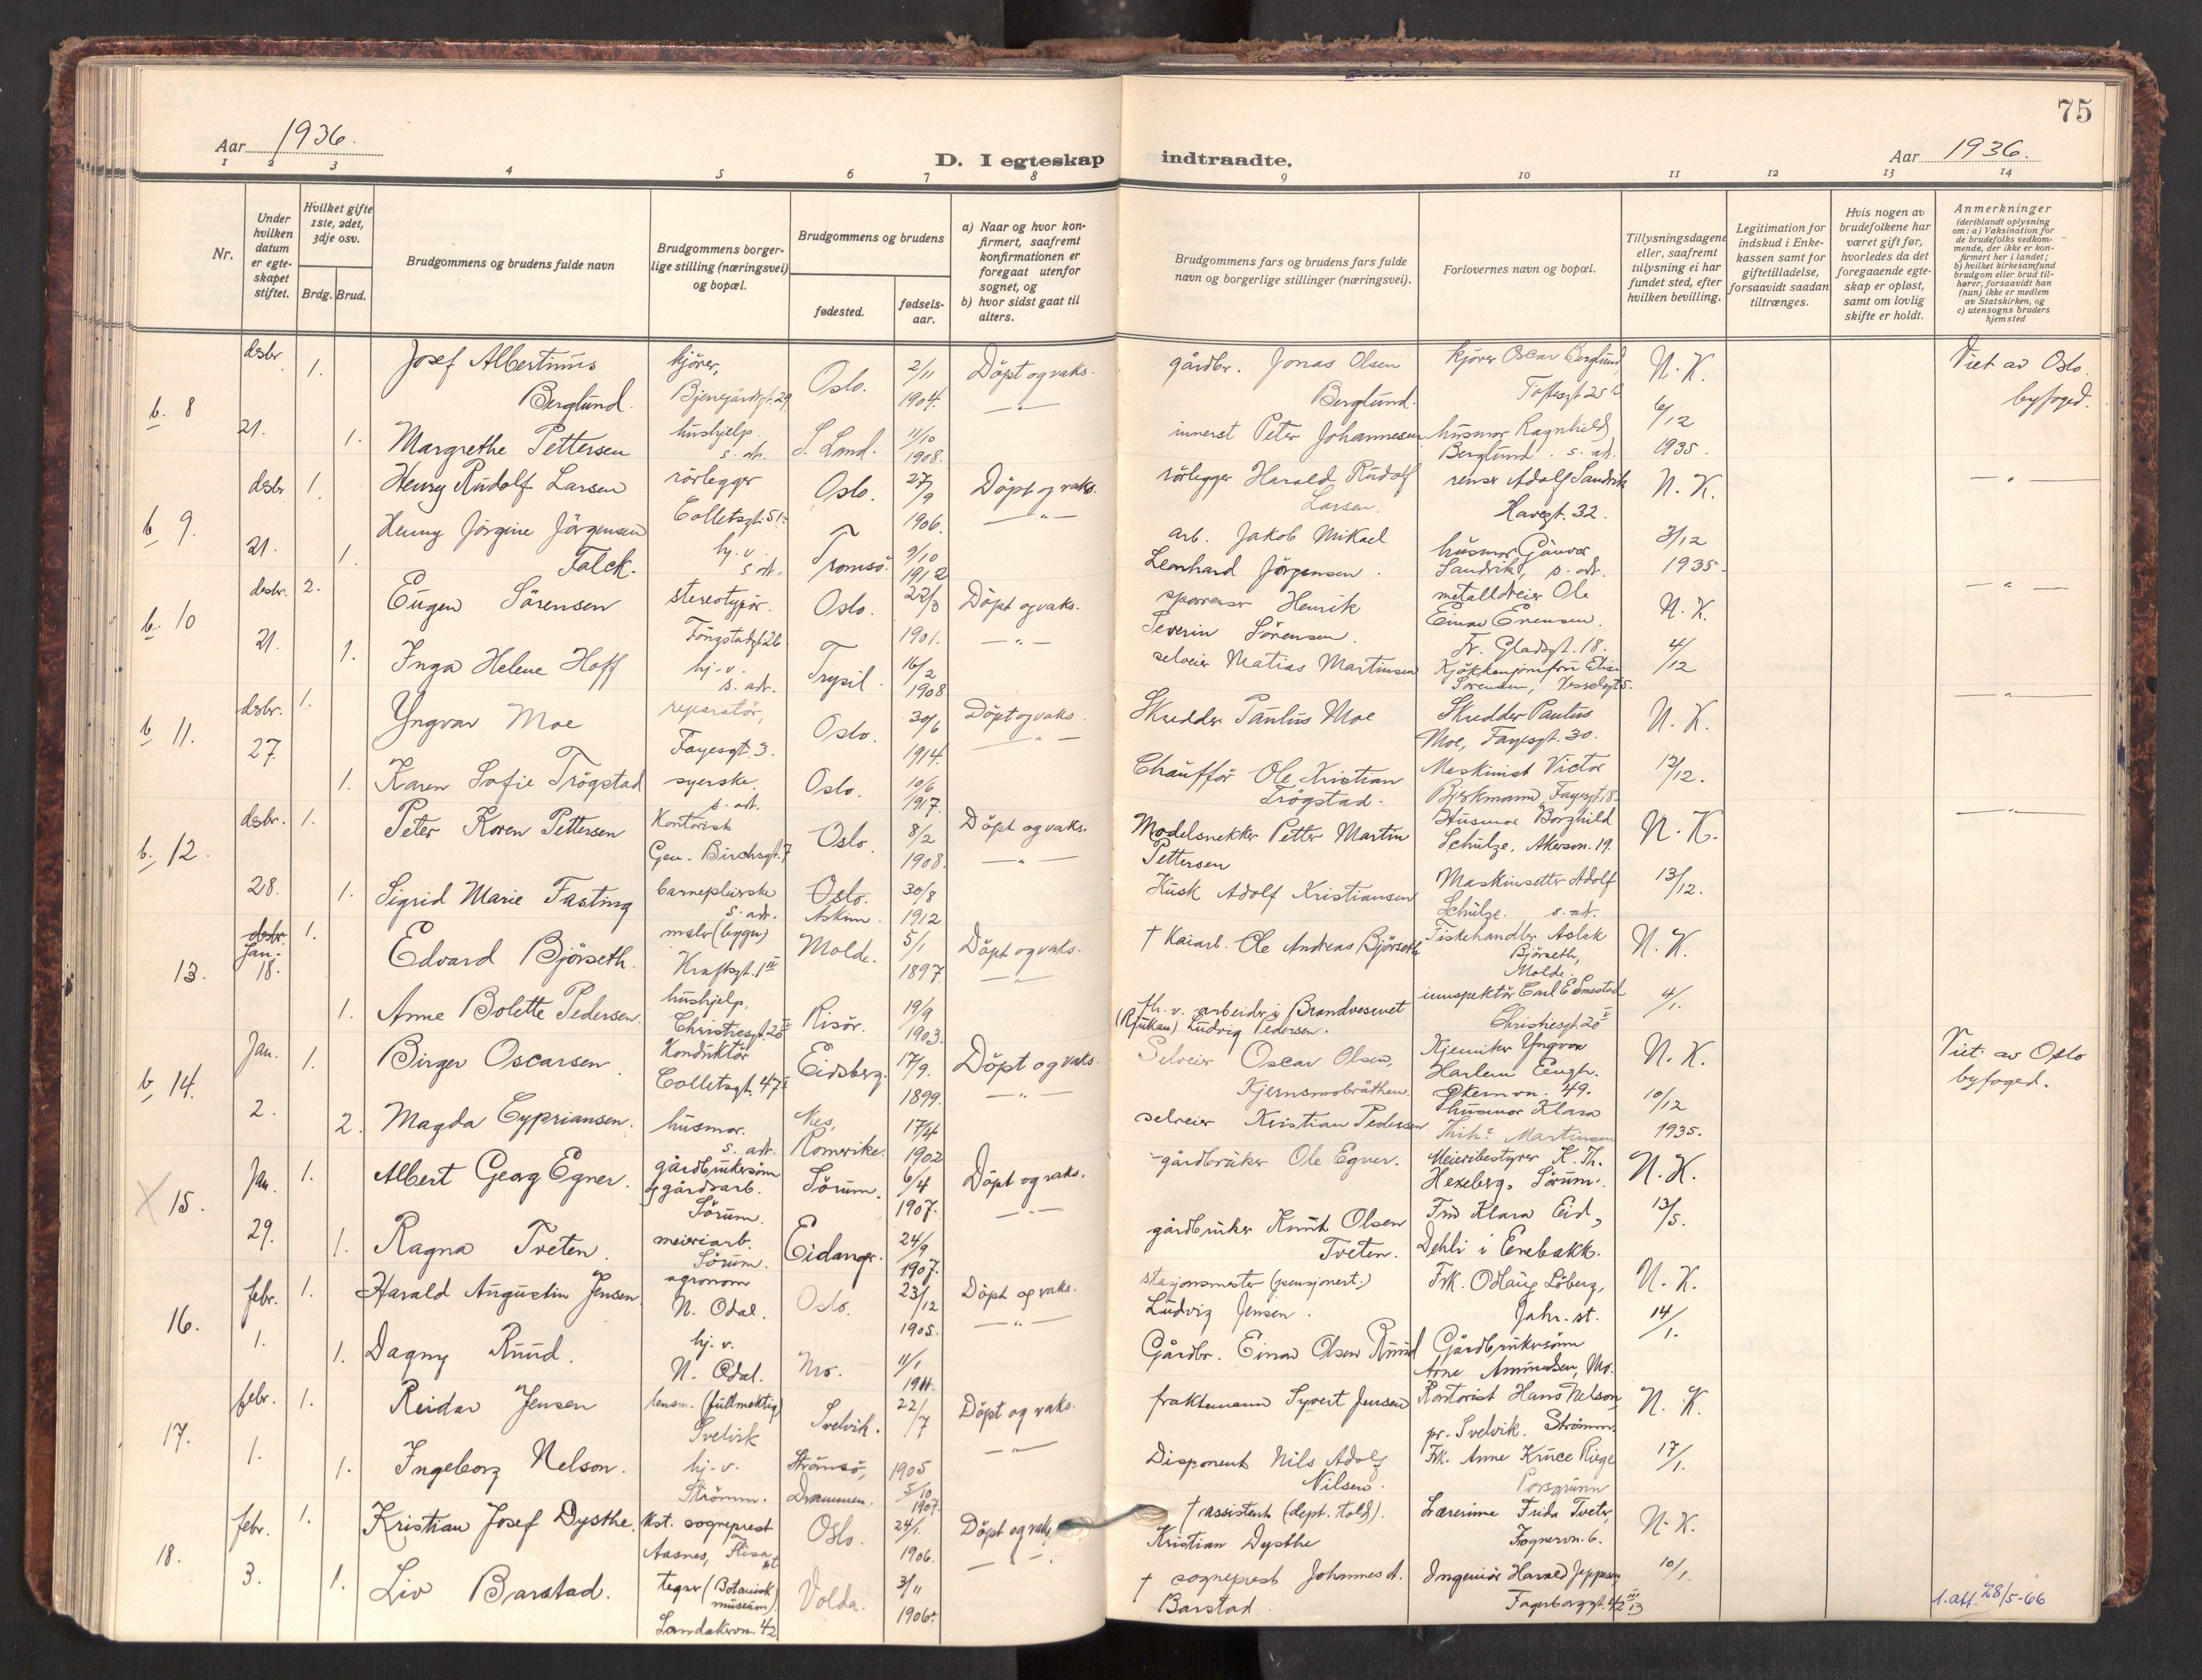 75
Aar 1936.
D. I egteskap indtraadte.
Aar 1936.
1 2 3 4 5 6 7 8 9 10 11 12 13 14
Nr.
Under hvilken datum er egteskapet stiftet.
Hvilket gifte 1ste, 2det, 3dje osv.
Brdg. Brud.
Brudgommens og brudens fulde navn
Brudgommens borgerlige stilling (næringsvei) og bopæl.
Brudgommens og brudens
fødested.
fødselsaar.
a) Naar og hvor konfirmert, saafremt konfirmationen er foregaat utenfor sognet, og
b) hvor sidst gaat til alters.
Brudgommens fars og brudens fars fulde navn og borgerlige stillinger (næringsvei).
Forlovernes navn og bopæl.
Tillysningsdagene eller, saafremt tillysning ei har fundet sted, efter hvilken bevilling.
Legitimation for indskud i Enkekassen samt for giftetilladelse, forsaavidt saadan tiltrænges.
Hvis nogen av brudefolkene har været gift før, hvorledes da det foregaaende egteskap er opløst, samt om lovlig skifte er holdt.
Anmerkninger
(deriblandt oplysning om: a) Vaksination for de brudefolks vedkommende, der ikke er konfirmert her i landet;
b) hvilket kirkesamfund brudgom eller brud tilhører, forsaavidt han (hun) ikke er medlem av Statskirken, og
c) utensogns bruders hjemsted
b. 8 desbr. 21. 1. Josef Albertinius Berglund. kjörer, Oslo. 2/11 1904. Döpt og vaks. gårdbr. Jonas Olsen Berglund. kjörer Oscar Berglund N. K. Viet av Oslo byfoged.
1. Margrethe Pettersen hushjelp s. ad. S. Land. 11/10 1908. — " — innerst Peter Johannesen husmor Ragnhild Berglund. s. ad. 6/12 1935.
b 9. desbr. 21. 1. Henry Rudolf Larsen rörlegger Colletsgt. 51 Oslo. 27/9 1906. Döpt og vaks. rörlegger Harald Rudolf Larsen. Adolf Sandvik Havegt. 32. N. K. — " —
1. Henny Jörgine Jörgensen Falck. hj. v. s. ad. Tromsö. 9/10 1912 — " — arb. Jakob Mikael Leonhard Jörgensen. husmor Gunvor Sandvik, s. ad. 3/12 1935.
b. 10 desbr. 21. 2. Eugen Sörensen stereotypör. Oslo. 22/3 1901. Döpt og vaks. Henrik Severin Sörensen. metalldreier Ole Einar Evensen. Fr. Gladsgt. 18. N. K. — " —
1. Inga Helene Hoff hj. v. s. ad. Trysil. 16/2 1908 — " — selveier Matias Martinsen Kjökkenjomfru Elise Sörensen, 4/12
b 11. desbr. 27. 1. Yngvar Moe reparatör, Fayesgt. 3. Oslo. 30/6 1914. Döpt og vaks. Skredder Paulus Moe Skredder Paulus Moe, Fayesgt. 30. N. K. — " —
1. Karen Sofie Trögstad syerske. s. ad. Oslo. 10/6 1917. — " — Chaufför Ole Kristian Trögstad. Maskinist Victor Fayesgt. 18. 12/12.
b. 12. desbr. 28. 1. Peter Koren Pettersen Kontorist Gen. Birchsgt. 7 Oslo. 8/2 1908. Döpt og vaks. Modelsnekker Petter Martin Pettersen Husmor Borghild Schulze, Akersvn. 19. N. K. — " —
1. Sigrid Marie Fasting barnepleierske s. ad. Oslo. Askim. 30/8 1912 — " — Kusk Adolf Kristiansen Maskinsetter Adolf Schulze. s. ad. 13/12.
13. desbr. Jan. 18. 1. Edvard Bjørseth. maler (bygn) Kraftsgt. 1 III Molde. 5/1 1897. Döpt og vaks. † Kaiarb. Ole Andreas Bjørseth Fiskehandler Aslak Bjørseth, Molde. N. K.
1. Anne Bolette Pedersen. hushjelp, Christiesgt. 28 Risör. 19/9 1903. — " — fh. v. arbeider i Brandvesenet (Rjukan) Ludvig Pedersen. innspektör Carl E Smestad Christiesgt. 20 4/1.
b 14. Jan. 2. 1. Birger Oscarsen. Konduktör Colletsgt. 47 Eidsberg. 17/9. 1899. Döpt og vaks. Selveier Oscar Olsen, Kjemiker Yngvar Harlem Eengh. Økernvn. 49. N. K. Viet av Oslo byfoged.
2. Magda Cypriansen. husmor. s. ad. Nes, Romerike. 17/4 1902 — " — selveier Kristian Pedersen husmor Klara Martinsen 10/12 1935.
X 15. Jan. 29. 1. Albert Georg Egner. gårdbrukersönn og gårdsarb. Sörum. Sörum. 6/4 1907. Döpt og vaks. gårdbruker Ole Egner. Meieribestyrer K. Th. Hexeberg, Sörum. N. K.
1. Ragna Tveten. meieriarb. Sörum. Eidanger. 24/9 1907. — " — gårdbruker Knut Olsen Tveten. Fru Klara Eid, Dehli i Enebakk. 13/5.
16. febr. 1. 1. Harald Augustin Jensen agronom N. Odal. Oslo. 23/12 1905. Döpt og vaks. stasjonsmester (pensjonert.) Ludvig Jensen. Frk. Odlaug Löberg, Jahr. st. N. K.
1. Dagny Ruud. hj. v. N. Odal. Mo. 11/1 1911. — " — Gårdbr. Einar Olsen Ruud Gårdbrukersönn Arne Amundsen, Mo. 14/1.
17. febr. 1. 1. Reidar Jensen lensm. (fullmektig) Svelvik Svelvik. 22/7 1905 Döpt og vaks. fraktemann Syvert Jensen Kontorist Hans Nelson, pr. Svelvik. Strömm. N. K.
1. Ingeborg Nelson. hj. v. Strömm. Strömsö, Drammen. 5/10 1907. — " — Disponent Nils Adolf Nilsen. Frk. Anne Kruce Riege Porsgrunn 17/1.
18. febr. 3. 1. Kristian Josef Dysthe. kst. sogneprest Aasnes, Flisa st Oslo. 24/1. 1906. Döpt og vaks. † assistent (dept. told). Kristian Dysthe Lærerinne Frida Tveter, Frognervn. 6. N. K.
1. Liv Barstad. tegner (Botanisk museum) Sandakervn. 42 Volda. 3/11 1906. — " — † sogneprest Johannes A. Barstad. Ingeniör Harald Jeppesen Fagerborggt. 10/1.
1. att. 28/5-66